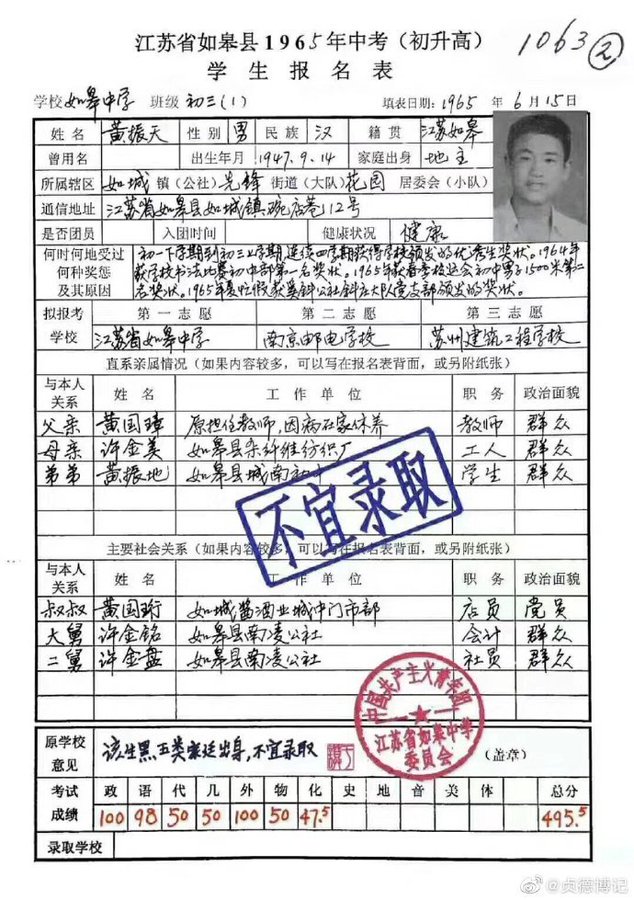 江苏省如皋县1965年中考（初升高）
1063②
学生报名表
学校 如皋中学 班级 初三(1) 填表日期：1965 年 6 月 15 日
姓名 黄振天 性别 男 民族 汉 籍贯 江苏如皋
曾用名 出生年月 1947.9.14 家庭出身 地主
所属辖区 如城 镇（公社） 先锋 街道（大队） 花园 居委会（小队）
通信地址 江苏省如皋县如城镇碗店巷12号
是否团员 入团时间 健康状况 健康
何时何地受过 初一下学期到初三上学期连续四学期获得学校颁发的优秀生奖状。1964年
何种奖惩 获学校书法比赛初中部第一名奖状。1965年获春季校运会初中男子1500米第二
及其原因 名奖状。1965年夏忙假获公社大队党支部颁发的奖状。
拟报考 第一志愿 第二志愿 第三志愿
学校 江苏省如皋中学 南京邮电学校 苏州建筑工程学校
直系亲属情况（如果内容较多，可以写在报名表背面，或另附纸张）
与本人关系 姓名 工作单位 职务 政治面貌
父亲 黄国璋 原担任教师，因病在家休养 教师 群众
母亲 许金美 如皋县杂纤维纺织厂 工人 群众
弟弟 黄振地 如皋县城南初中 学生 群众
不宜录取
主要社会关系（如果内容较多，可以写在报名表背面，或另附纸张）
与本人关系 姓名 工作单位 职务 政治面貌
叔叔 黄国珩 如城酱酒业城中门市部 店员 党员
大舅 许金铭 如皋县南凌公社 会计 群众
二舅 许金盘 如皋县南凌公社 社员 群众
中国共产主义青年团
江苏省如皋中学
委员会
原学校意见 该生黑五类家廷出身，不宜录取 （盖章）
考试 政 语 代 几 外 物 化 史 地 音 美 体 总分
成绩 100 98 50 50 100 50 47.5 495.5
录取学校
@贞德博记